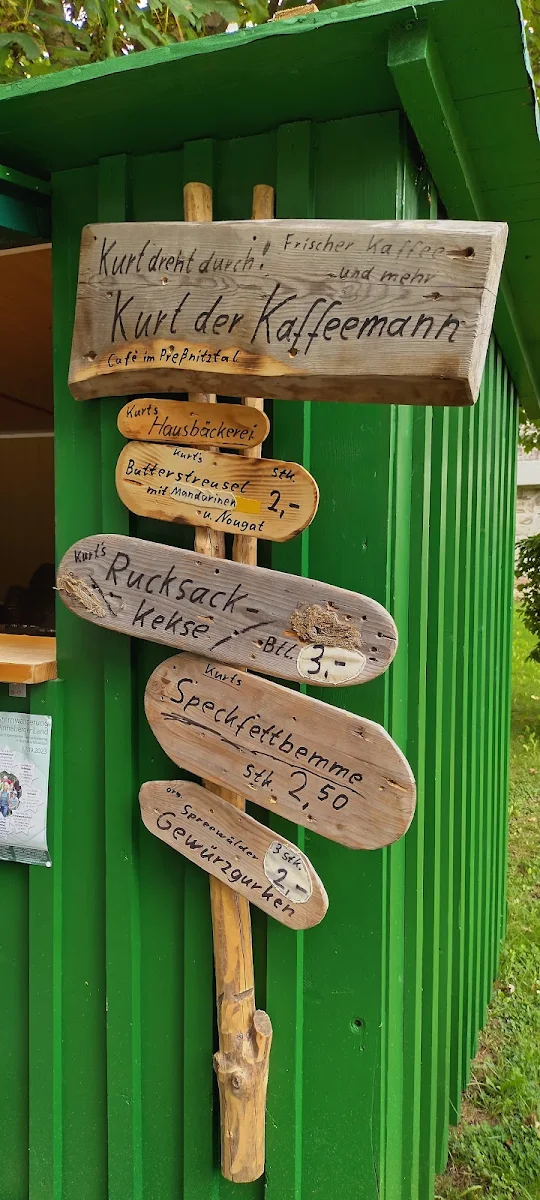 Kurt dreht durch!
Frischer Kaffee
und mehr
Kurt der Kaffeemann
Café im Preßnitztal
Kurts
Hausbäckerei
Kurt's
Butterstreusel
mit Mandarinen
u. Nougat
Stk.
2,-
Kurt's
Rucksack-
Kekse
Btl.
3,-
Kurts
Speckfettbemme
Stk. 2,50
Spreewälder
Gewürzgurken
3 Stk.
2,-